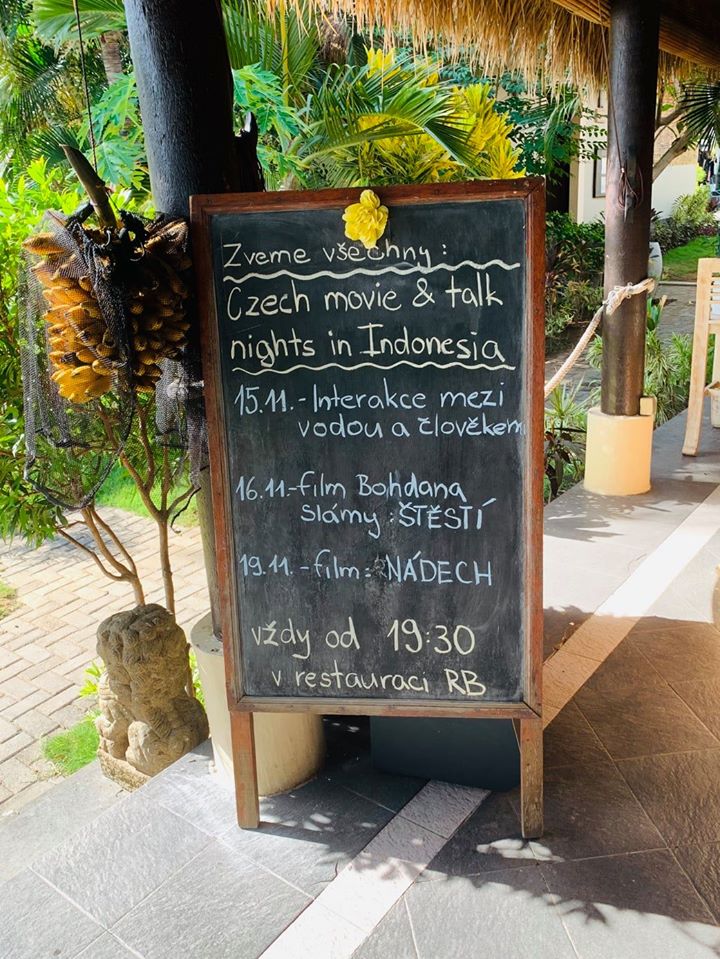 Zveme všechny:
Czech movie & talk
nights in Indonesia
15.11.-Interakce mezi
vodou a člověkem
16.11.-film Bohdana
Slámy: ŠTĚSTÍ
19.11.-film: NÁDECH
vždy od 19:30
v restauraci RB